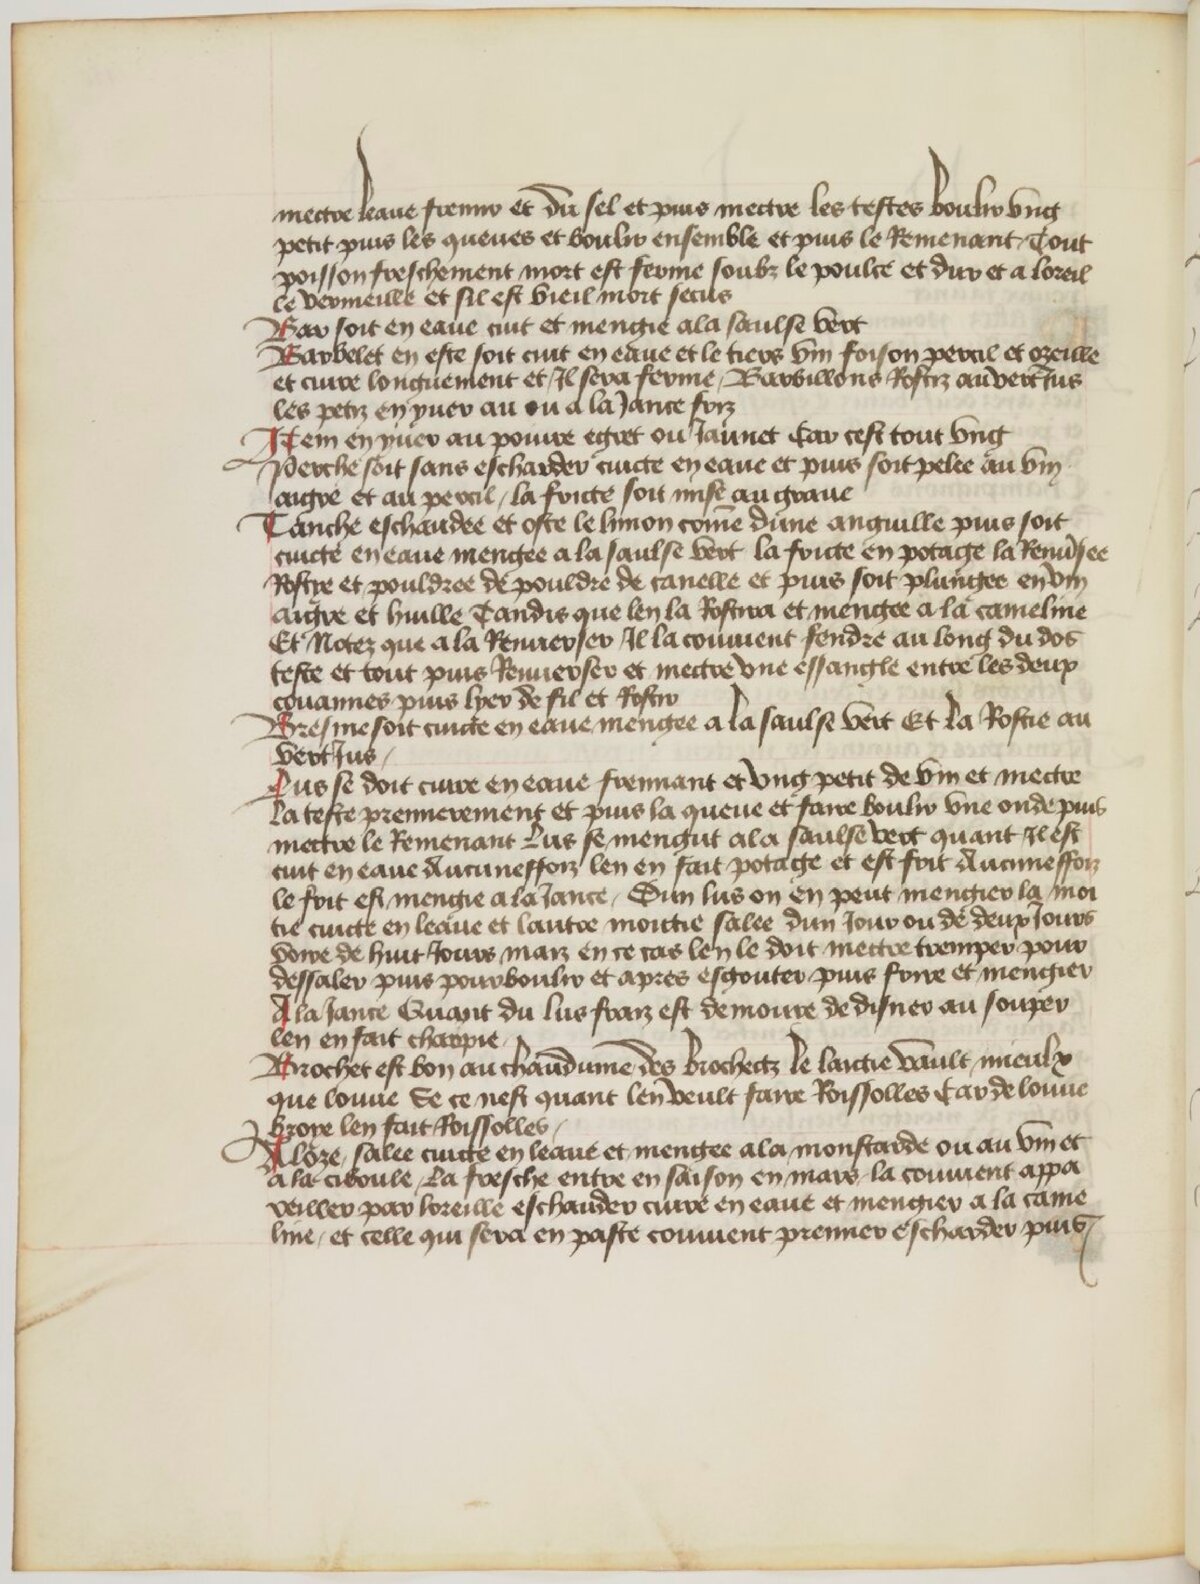 mectre leaue fremir et du sel et puis mectre les testes boulir vng
petit puis les queues et boulir ensemble et puis le Remenant Tout
poisson freschement mort est ferme soubz le poulce et dur et a loreil
le vermeille et sil est vieil mort secus
Bar soit en eaue cuit et mengie ala saulse vert
Barbelet en este soit cuit en eaue et le tiers vin foison percil et ozeille
et cuire longuement et Il sera ferme, Barbillons Rostiz au vert Jus
les petiz en yuer au ou a la Jance friz
Item en yuer au poiure egret ou Jaunet Car cest tout vng
Perche soit sans escharder cuicte en eaue et puis soit pelee au vin
aigre et au percil, la fricte soit mise au graue
Tanche eschaudee et oste le limon com̄e dune anguille puis soit
cuicte en eaue mengee a la saulse vert la fricte en potage la Renuersee
Rostye et pouldree de pouldre de canelle et puis soit plungee en vin
aigre et huille Tandis que len la Rostira et mengee a la cameline
Et Notez que a la Renuerser Il la couuient fendre au long du dos
teste et tout puis Renuerser et mectre vne essangle entre les deux
couannes puis lyer de fil et Rostir
Bresme soit cuicte en eaue mengee a la saulse vert Et la Rostie au
vert Jus /
Lus se doit cuire en eaue fremiant et vng petit de vin et mectre
La teste premierement et puis la queue et faire boulir vne onde puis
mectre le Remenant Lus se mengut ala saulse vert quant Il est
cuit en eaue Aucuneffoiz len en fait potage et est frit Aucuneffoiz
le frit est mengie a la Jance, Dun lus on en peut mengier la moi
tie cuicte en leaue et lautre moictie salee dun Jour ou de deux Jours
voire de huit Jours maiz en ce cas len le doit mectre tremper pour
dessaler puis pourboulir et apres esgouter puis frire et mengier
A la Jance Quant du lus fraiz est demoure de disner au souper
len en fait charpie
Brochet est bon au chaudume des brochetz Le laictie vault mieulx
que louue Se ce nest quant len veult faire Roissolles Car de louue
broye len fait Roissolles /
Aloze, salee cuicte en leaue et mengee ala monstarde ou au vin et
a la ciboule, La fresche entre en saison en mars la couuient appa
reiller par loreille eschauder cuire en eaue et mengier a la came
line, et celle qui sera en paste couuient premier escharder puis